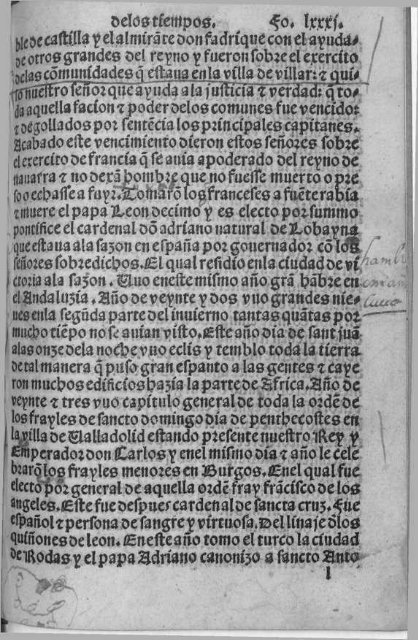 delos tiempos. Fo. lxxxj.
ble de castilla y el almirãte don fadrique con el ayuda-
de otros grandes del reyno y fueron sobre el exercito
delas cõmunidades q̃ estaua en la villa de villar: ⁊ qui-
so nuestro señor que ayuda a la justicia ⁊ verdad: q̃ to-
da aquella facion ⁊ poder delos comunes fue vencido:
⁊ degollados por sentẽcia los principales capitanes.
Acabado este vencimiento dieron estos señores sobre
el exercito de francia q̃ se auia apoderado del reyno de
nauarra ⁊ no dexã hombre que no fuesse muerto o pre
so o echasse a fuyr. Tomarõ los franceses a fuẽte rabia
⁊ muere el papa Leon decimo y es electo por summo
pontifice el cardenal dõ adriano natural de Lobayna
que estaua ala sazon en españa por gouernador cõ los
señores sobredichos. El qual residio enla ciudad de vi
ctoria ala sazon. Vuo eneste mismo año grã hãbre en
el Andaluzia. Año de veynte y dos vuo grandes nie-
ues enla segũda parte del inuierno tantas quãtas por
mucho tiẽpo no se auian visto. Este año dia de sant juã
alas onze dela noche vuo eclis y temblo toda la tierra
de tal manera q̃ puso gran espanto a las gentes ⁊ caye
ron muchos edificios hazia la parte de Africa. Año de
veynte ⁊ tres vuo capitulo general de toda la ordẽ de
los frayles de sancto domingo dia de penthecostes en
la villa de Valladolid estando presente nuestro Rey y
Emperador don Carlos y enel mismo dia ⁊ año le cele
brarõ los frayles menores en Burgos. Enel qual fue
electo por general de aquella ordẽ fray frãcisco de los
angeles. Este fue despues cardenal de sancta cruz. Fue
español ⁊ persona de sangre y virtuosa. Del linaje d̃los
quiñones de leon. En este año tomo el turco la ciudad
de Rodas y el papa Adriano canonizo a sancto Anto
l